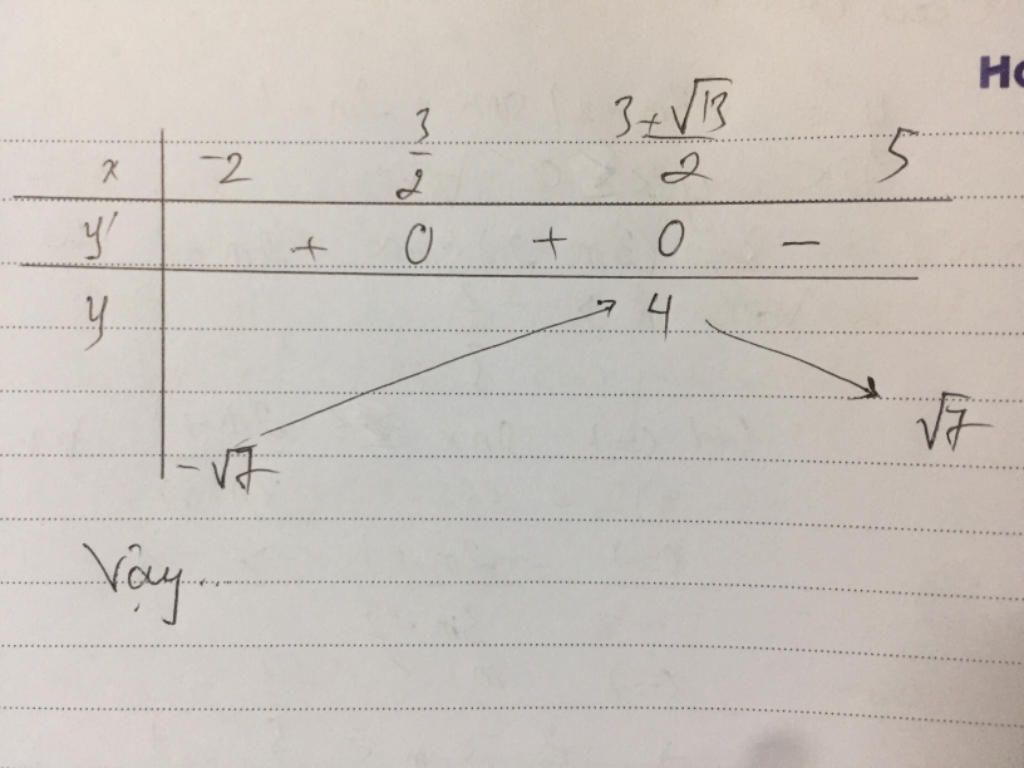 Ho
x -2 3/2 (3±√13)/2 5
y' + 0 + 0 -
y 4
√7
-√7
Vậy...